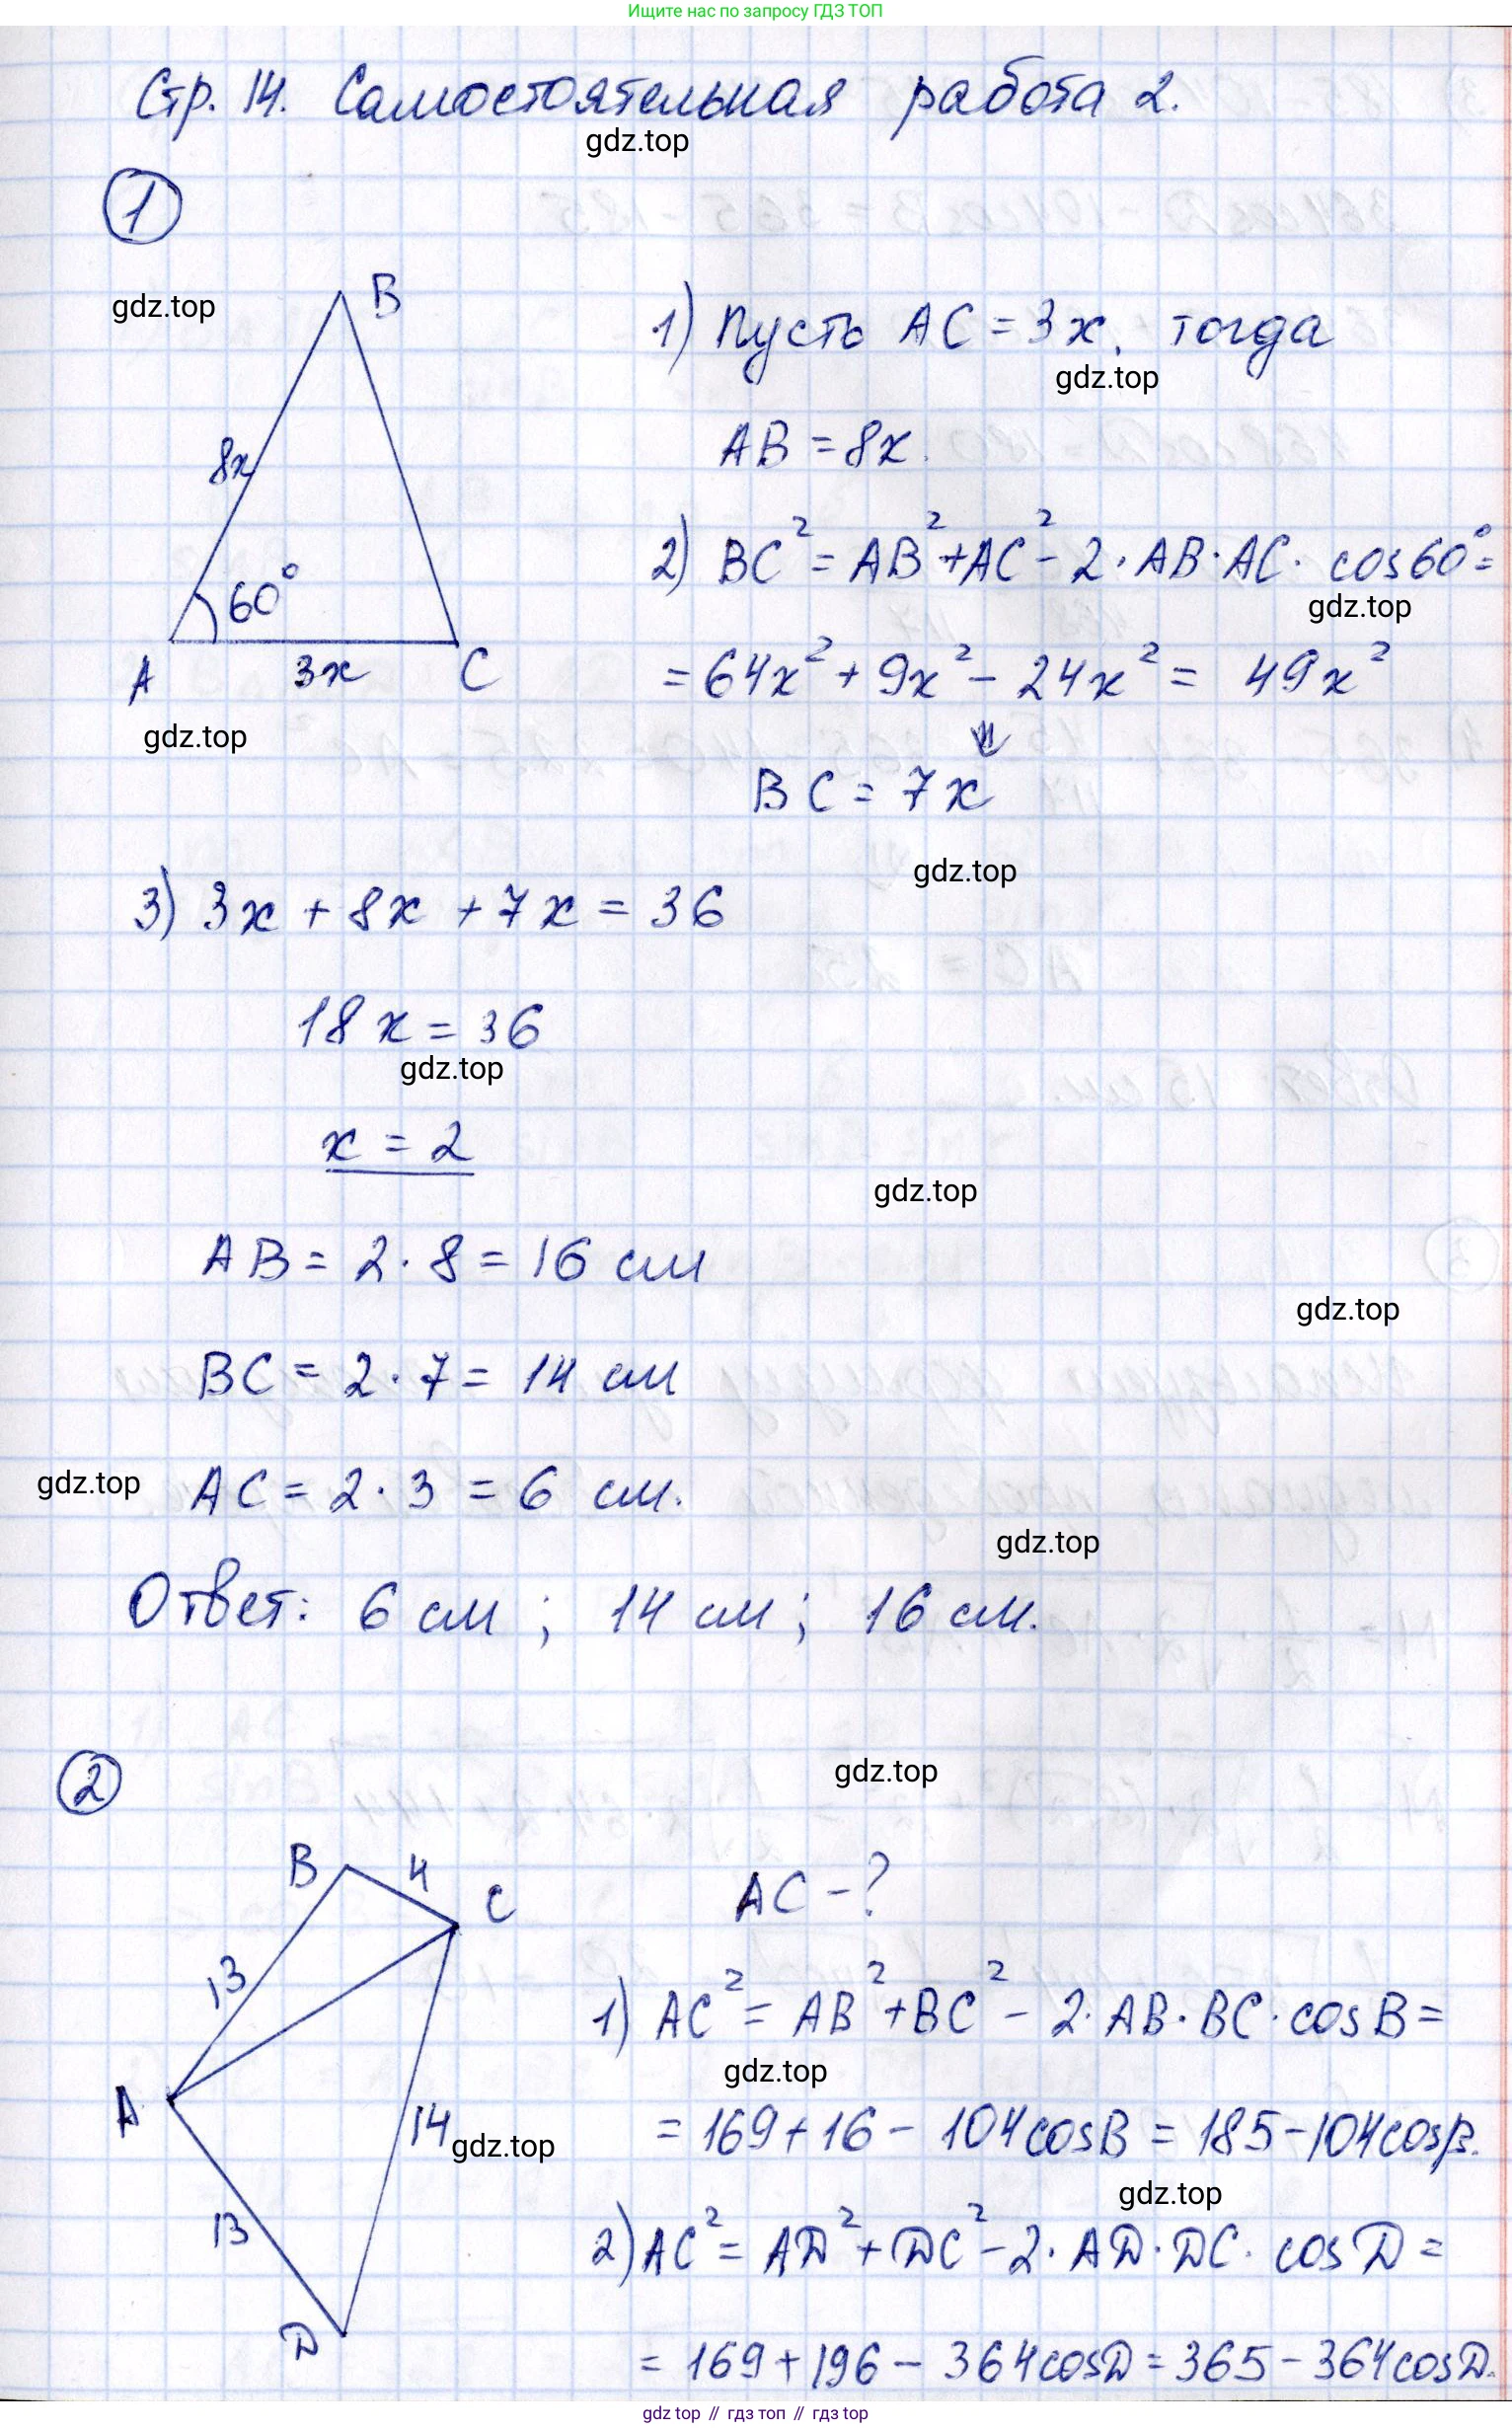 Ищите нас по запросу ГДЗ ТОП
Стр. 14. Самостоятельная работа 2.
gdz.top
1
gdz.top
B
8x
60°
A
3x
C
gdz.top
1) Пусть AC = 3x, тогда
gdz.top
AB = 8x.
2) BC² = AB² + AC² - 2 · AB · AC · cos60° =
gdz.top
= 64x² + 9x² - 24x² = 49x²
⇓
BC = 7x
gdz.top
3) 3x + 8x + 7x = 36
18x = 36
gdz.top
x = 2
gdz.top
AB = 2 · 8 = 16 см
gdz.top
BC = 2 · 7 = 14 см
gdz.top
AC = 2 · 3 = 6 см.
gdz.top
Ответ: 6 см ; 14 см ; 16 см.
gdz.top
2
B
4
C
13
A
14
gdz.top
13
D
AC - ?
1) AC² = AB² + BC² - 2 · AB · BC · cosB =
gdz.top
= 169 + 16 - 104cosB = 185 - 104cosB.
gdz.top
2) AC² = AD² + DC² - 2 · AD · DC · cosD =
= 169 + 196 - 364cosD = 365 - 364cosD.
gdz top // гдз топ // gdz top